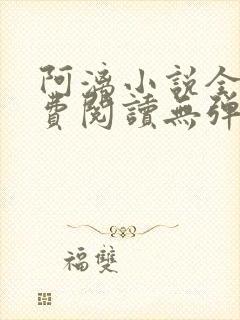 阿漓小說全
費閱讀無彈
福雙